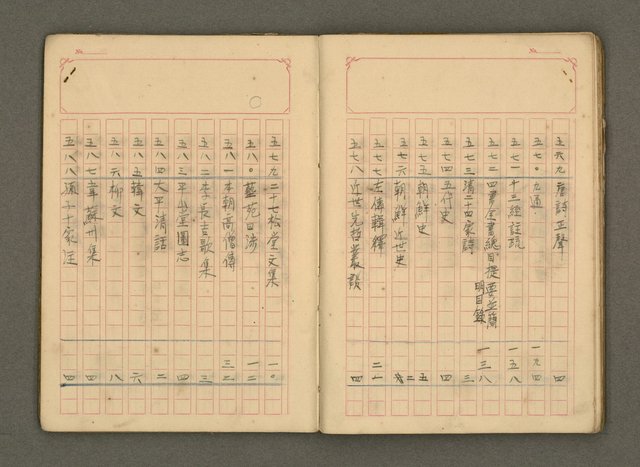 五六九唐詩正聲 四
五七〇九通 一九四
五七一十三經註疏 一五八
五七二四書全書總目提要並簡明目錄 一三八
五七三清二十四家詩 三
五七四五代史 四
五七五朝鮮史 五
五七六朝鮮近世史 二
五七七左傳輯釋 二一
五七八近世先哲叢談 四
五七九二十七松堂文集 一〇
五八〇藝苑四海 一二
五八一本朝高僧傳 三二
五八二李長吉歌集 三
五八三平山堂圖志 四
五八四太平清話 二
五八五韓文 六
五八六柳文 八
五八七韋蘇州集 四
五八八 四